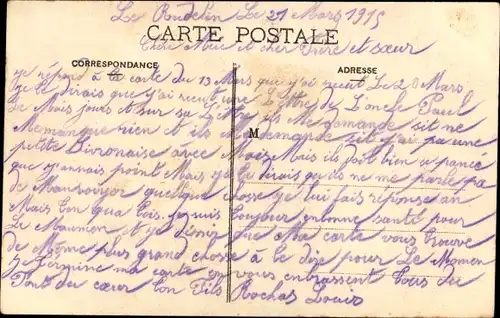 Le 21 Mars 1915
CARTE POSTALE
Chère Mère et cher frère et sœur
CORRESPONDANCE
ADRESSE
je répond à la carte du 13 Mars que j'ai recut Le 20 Mars
je te dirais que j'ai recut une Lettre de Loncle Paul
Le Mais jours et sur sa Lettre ils Me demande sit ne
Memanque rien et ils demande sit j'ai pa une
M
petite avec Moi Mais ils foit bien
que point Mais je te dirais qu'ils ne me parle pa
de quelque chose je lui fais réponse an
Mais Lon qua fois je suis toujour enbonne santé pour
Le et je que Ma carte vous trouve
de Mème plus grand chose à te dire pour Le Momen
je termine ma carte en vous enbrassent tous du
fond du cœur ton fils Rochas Louis